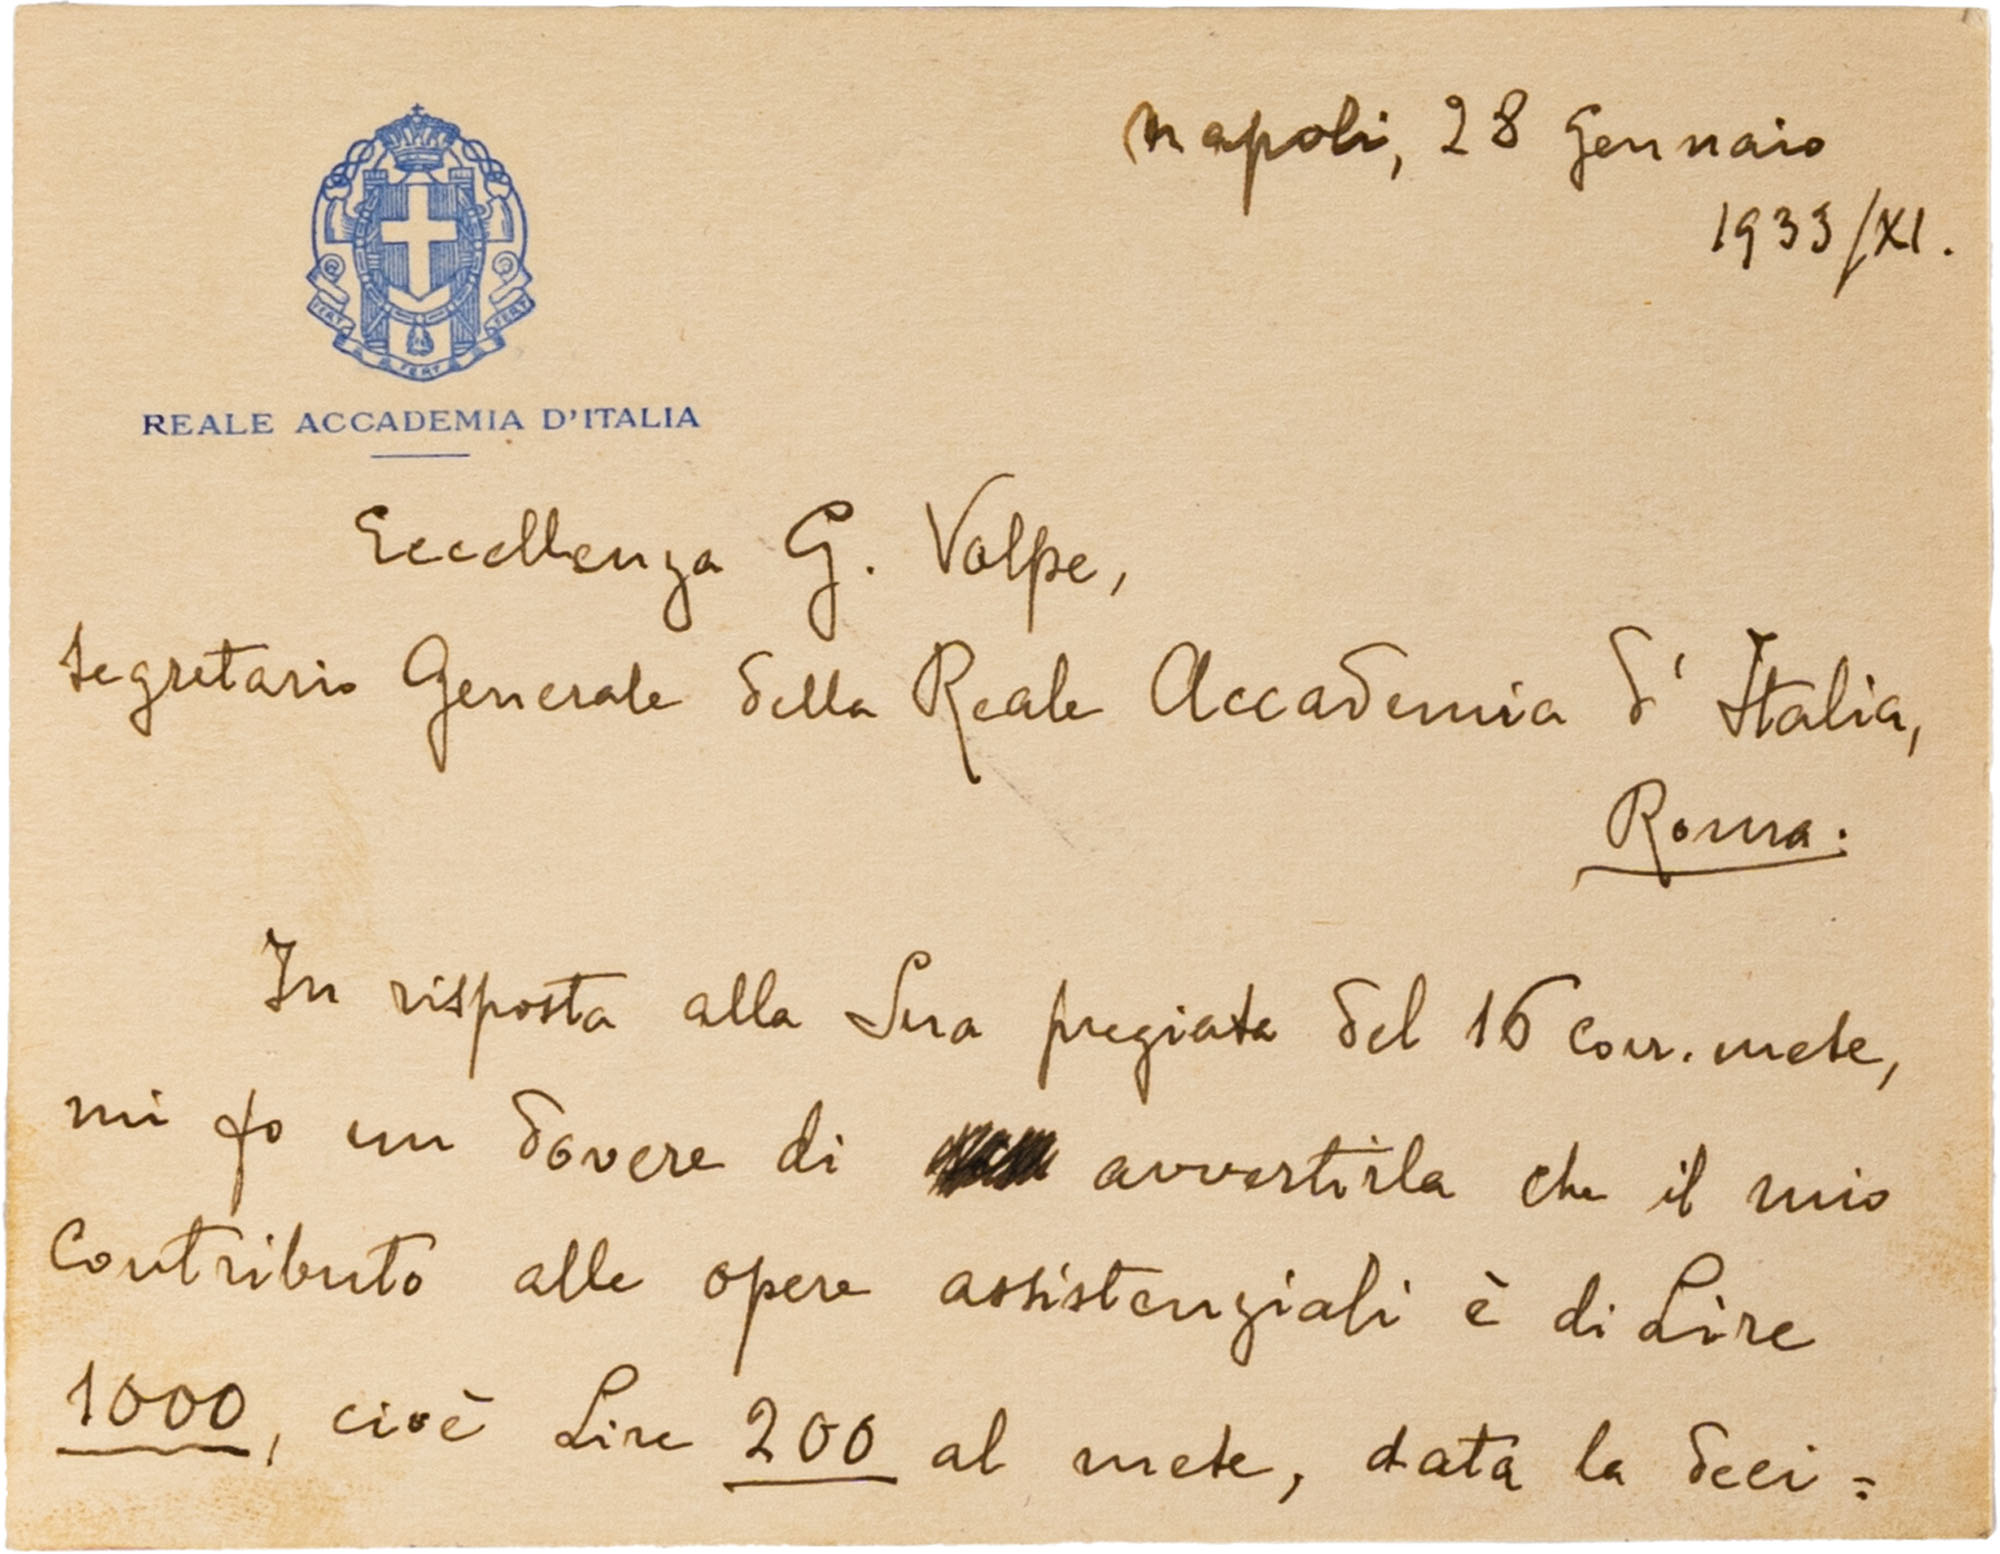 FERT FERT
FERT
REALE ACCADEMIA D'ITALIA
Napoli, 28 Gennaio
1933/XI.
Eccellenza G. Volpe,
Segretario Generale della Reale Accademia d'Italia,
Roma:
In risposta alla Sua pregiata del 16 corr. mese,
mi fo un dovere di avvertirla che il mio
contributo alle opere assistenziali è di Lire
1000, cioè Lire 200 al mese, data la deci=